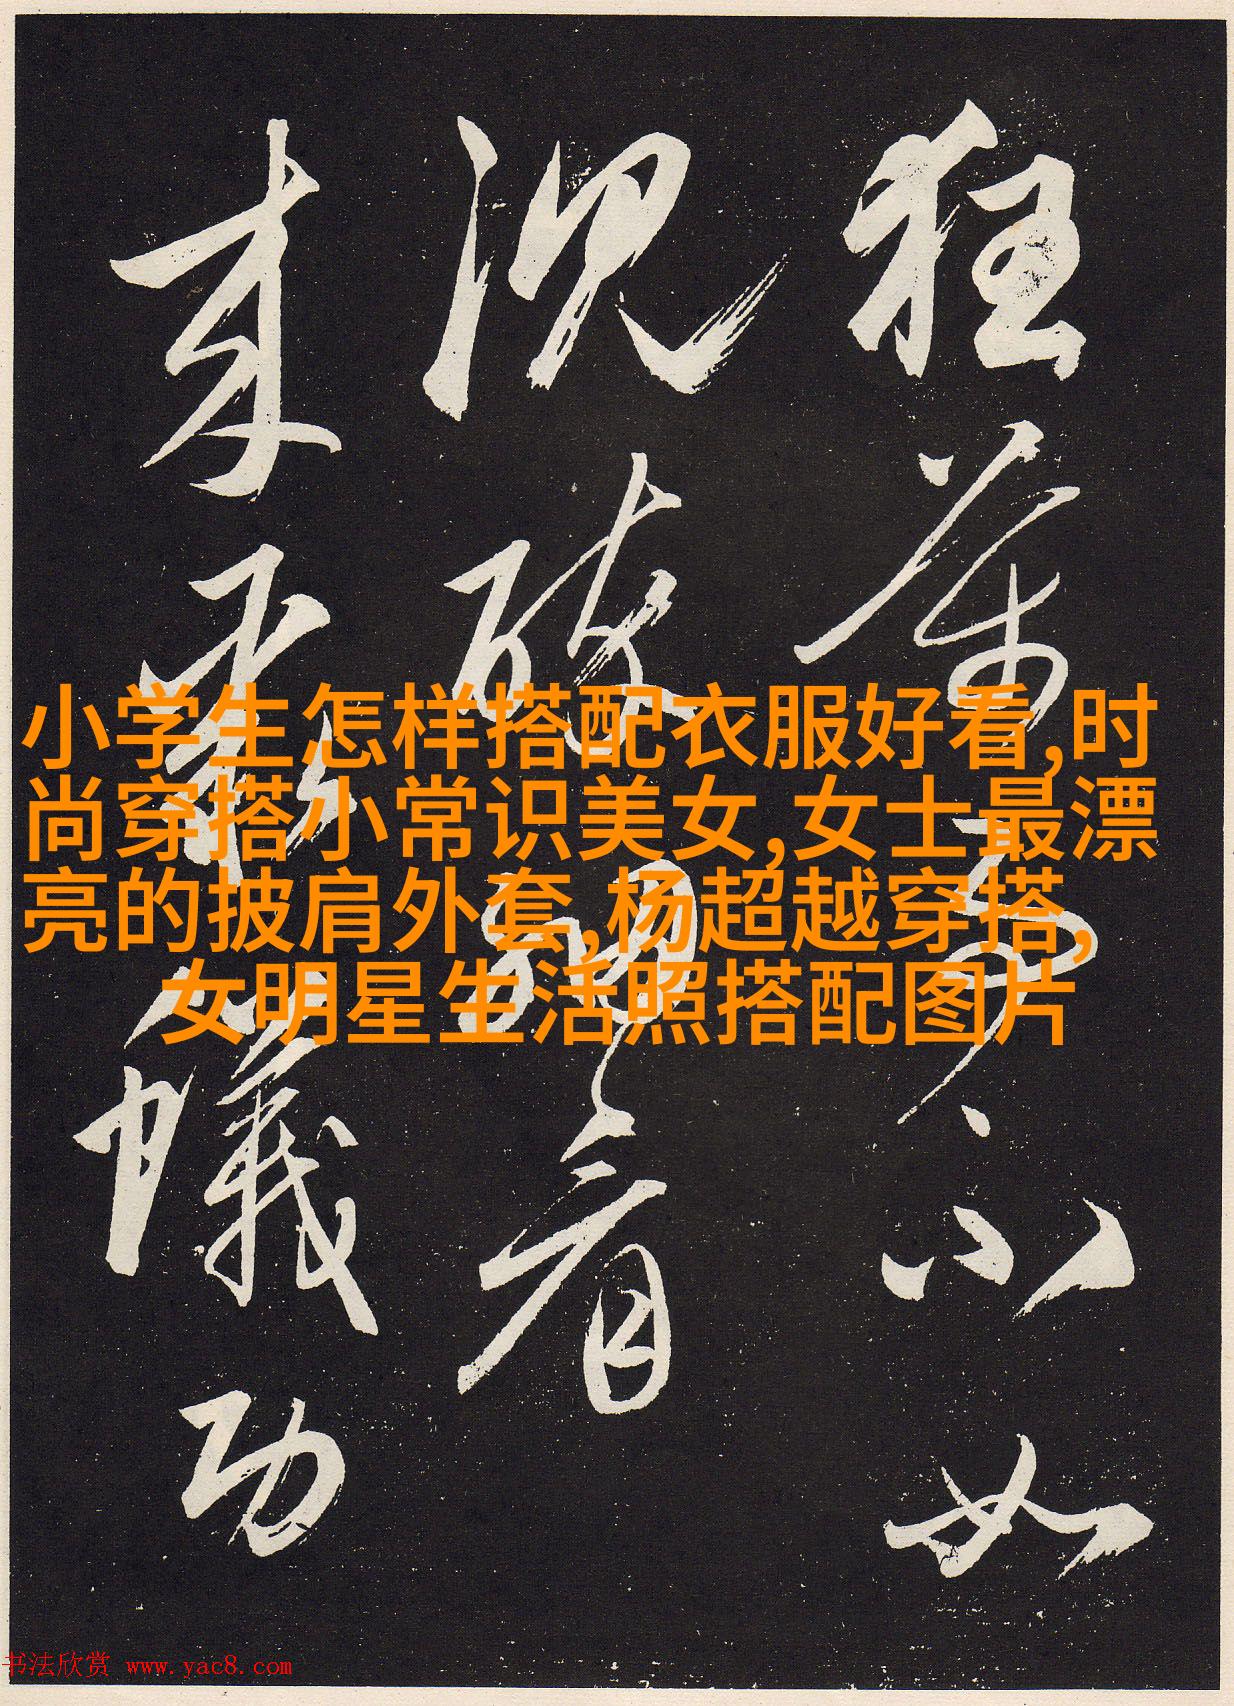 小学生怎样搭配衣服好看,时
尚穿搭小常识美女,女士最漂
亮的披肩外套,杨超越穿搭,
女明星生活照搭配图片
狂 不如
醉 者
来 蟻功
书法欣赏 www.yac8.com